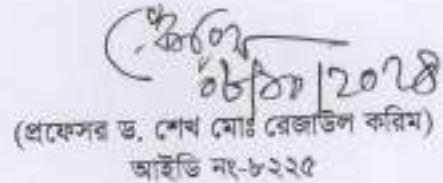 ০৮/১০/২০২৪
(প্রফেসর ড. শেখ মোঃ রেজাউল করিম)
আইডি নং-৮২২৫